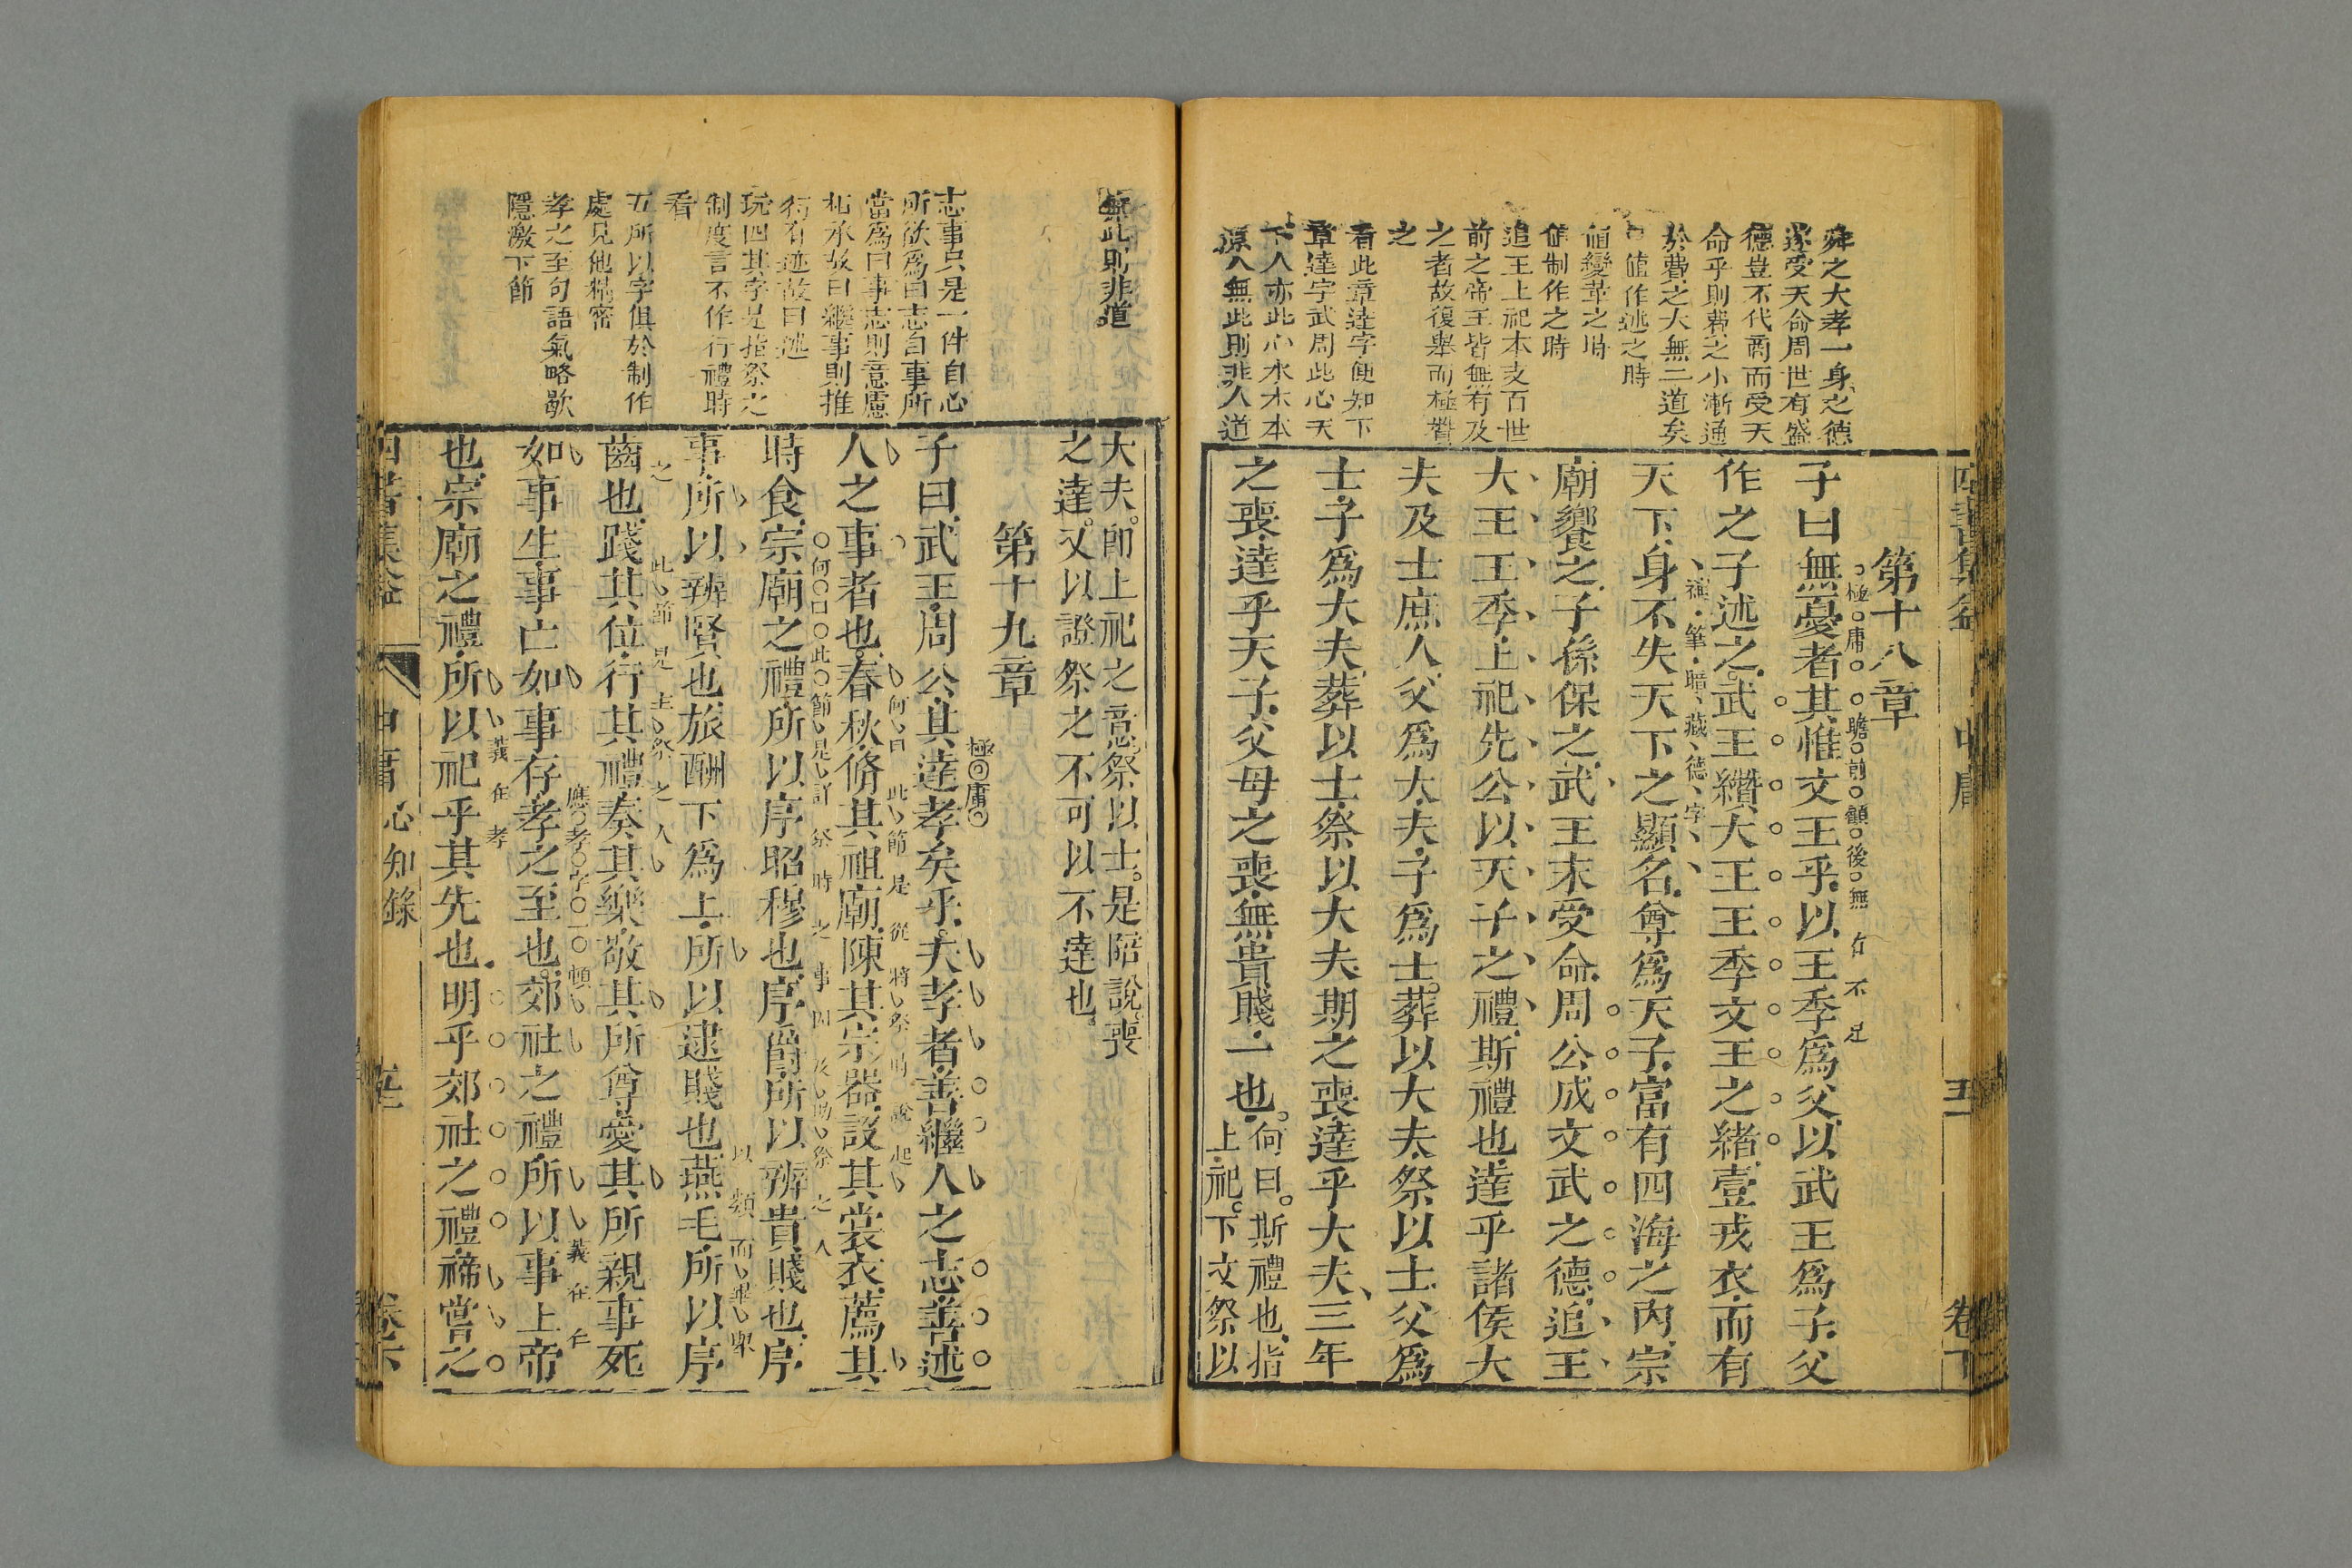 舜之大孝一身之德
遂受天命周世有盛
德豈不代商而受天
命乎則費之小漸通
於費之大無二道矣
值作述之時
值變革之時
值制作之時
追王上祀本支百世
前之帝王皆無有及
之者故復舉而極贊
之
看此章達字便知下
章達字武周此心天
下人亦此心水木本
源人無此則非人道
第十八章
極庸瞻前顧後無有不足
子曰無憂者其惟文王乎以王季爲父以武王爲子父
作之子述之武王纘大王王季文王之緒壹戎衣而有
補筆暗藏德字
天下身不失天下之顯名尊爲天子富有四海之內宗
廟饗之子孫保之武王末受命周公成文武之德追王
大王王季上祀先公以天子之禮斯禮也達乎諸侯大
夫及士庶人父爲大夫子爲士葬以大夫祭以士父爲
士子爲大夫葬以士祭以大夫期之喪達乎大夫三年
之喪達乎天子父母之喪無貴賤一也何曰斯禮也指
上祀下文祭以
中庸
五
卷下
無此則非道
志事只是一件自心
所欲爲曰志自事所
當爲曰事志則意慮
相承故曰繼事則推
行有迹故曰述
玩四其字是指祭之
制度言不作行禮時
看
五所以字俱於制作
處見他精密
孝之至句語氣略歇
隱激下節
大夫卽上祀之意祭以士是陪說喪
之達又以證祭之不可以不達也
第十九章
極庸
子曰武王周公其達孝矣乎夫孝者善繼人之志善述
何曰此節是從將祭時說起
人之事者也春秋脩其祖廟陳其宗器設其裳衣薦其
何曰此節是詳祭時之事因及助祭之人
時食宗廟之禮所以序昭穆也序爵所以辨貴賤也序
以類而舉
事所以辨賢也旅酬下爲上所以逮賤也燕毛所以序
此節見主祭之人
齒也踐其位行其禮奏其樂敬其所尊愛其所親事死
應孝字一頓義在仁
如事生事亡如事存孝之至也郊社之禮所以事上帝
義在孝
也宗廟之禮所以祀乎其先也明乎郊社之禮禘嘗之
中庸
心知錄
卷下